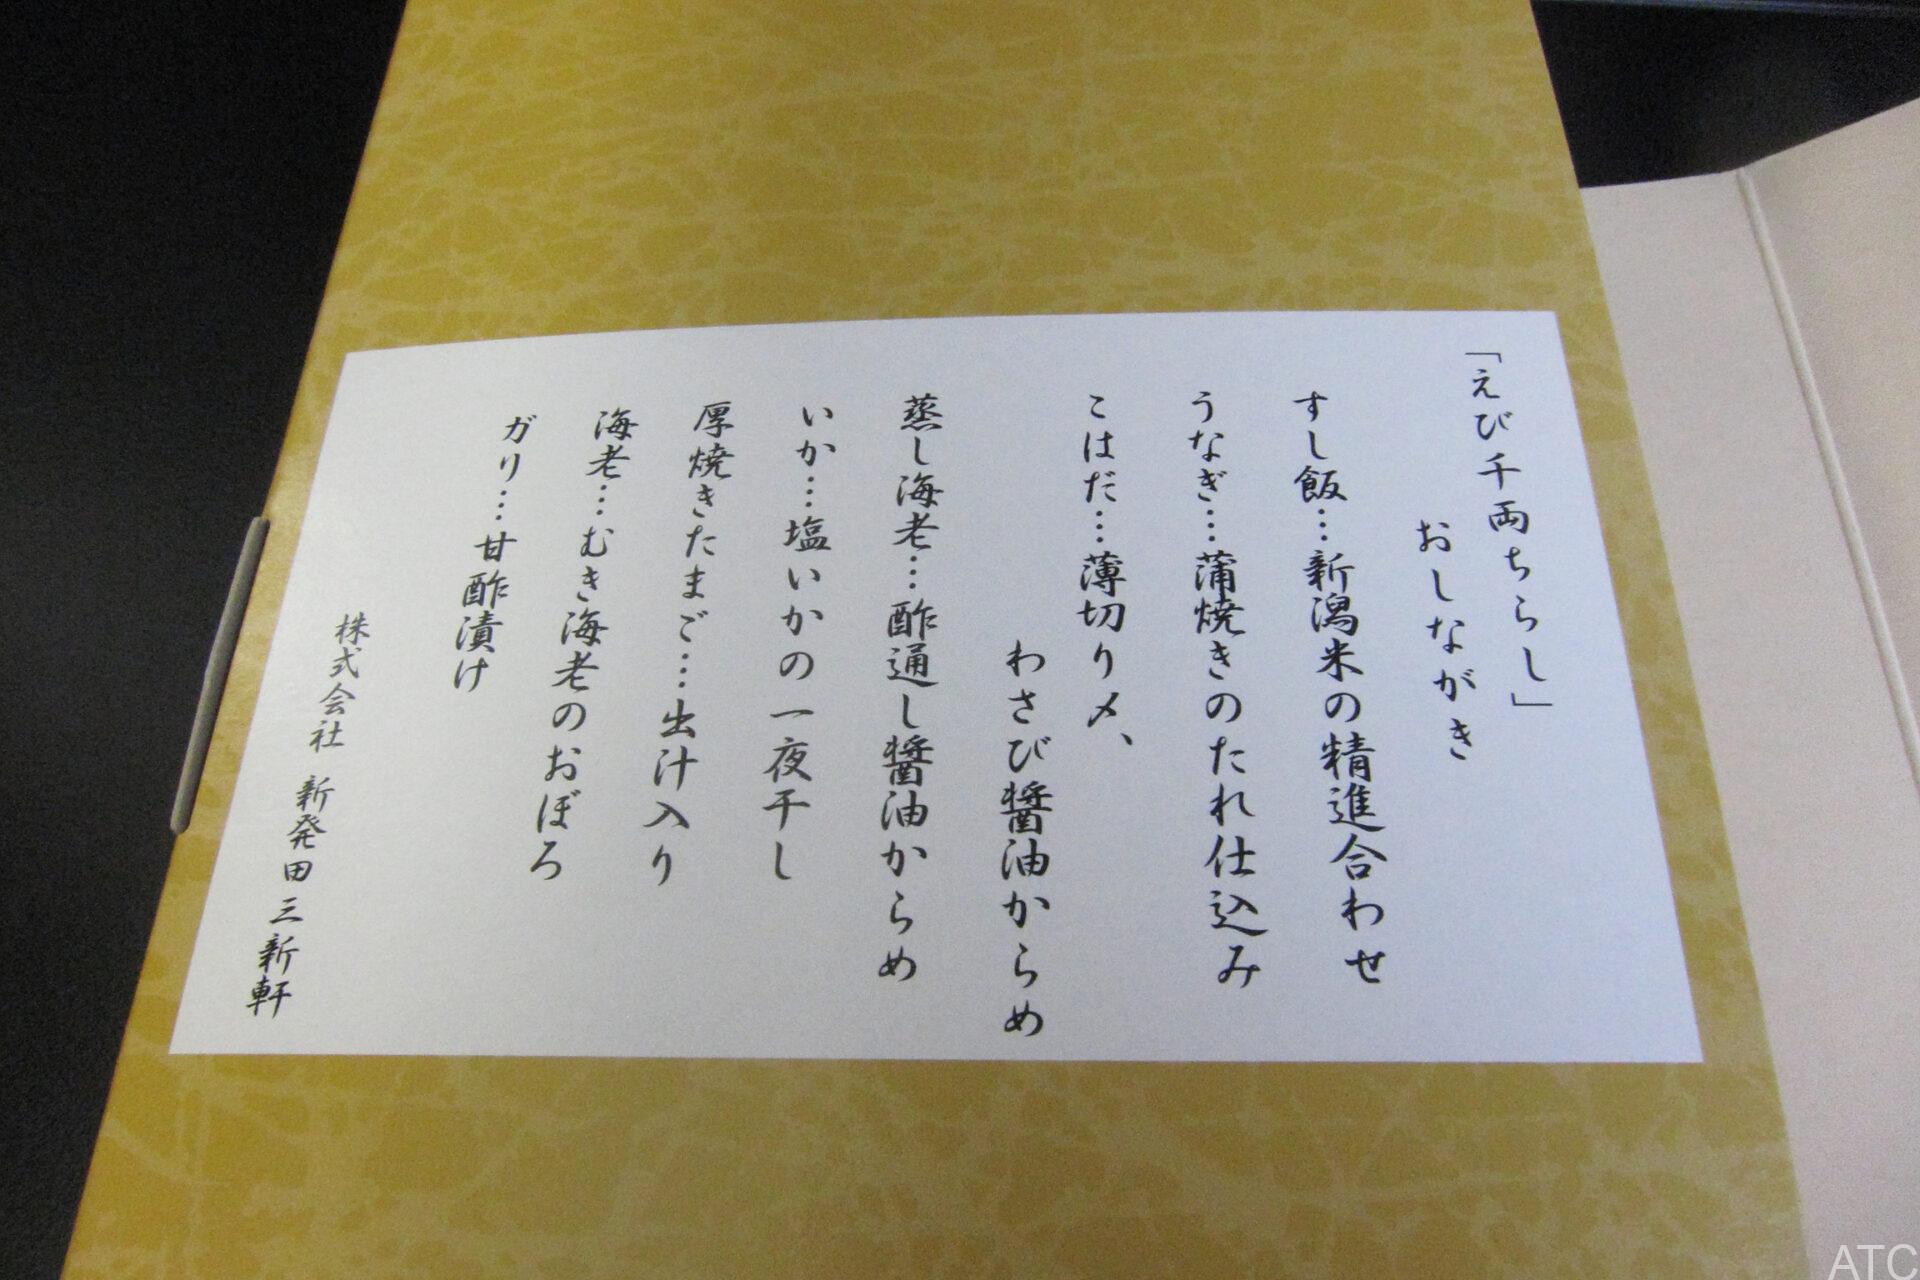 「えび千両ちらし」
おしながき
すし飯…新潟米の精進合わせ
うなぎ…蒲焼きのたれ仕込み
こはだ…薄切り〆、
わさび醤油からめ
蒸し海老…酢通し醤油からめ
いか…塩いかの一夜干し
厚焼きたまご…出汁入り
海老…むき海老のおぼろ
ガリ…甘酢漬け
株式会社 新発田三新軒
ATC